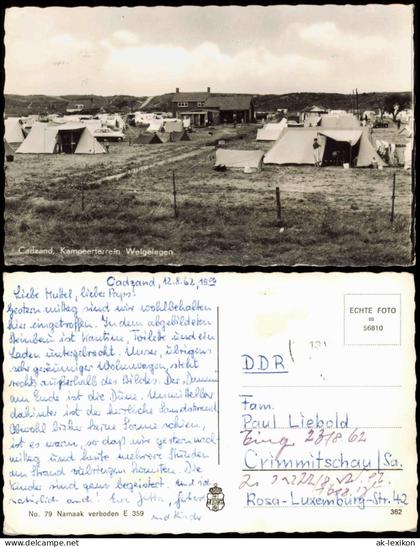 Cadzand, Kampeerterrein Welgelegen
Cadzand, 12.8.62, 18⁰⁰
Liebe Muttel, lieber Paps!
Gestern mittag sind wir wohlbehalten
hier eingetroffen. In dem abgebildeten
Steinbau ist Kantine, Toilette und ein
Laden untergebracht. Unser, übrigens
sehr geräumiger Wohnwagen, steht
rechts außerhalb des Bildes. Der "Damm"
am Ende ist die Düne. Unmittelbar
dahinter ist der herrliche Sandstrand.
Obwohl bisher keine Sonne schien,
ist es warm, so daß wir gestern nach-
mittag und heute mehrere Stunden
am Strand zubringen konnten. Die
Kinder sind ganz begeistert. Und
natürlich auch! Eure Jutta,
und Kinder
No. 79 Namaak verboden E 359
ECHTE FOTO
56810
DDR
Fam.
Paul Liebold
Eing. 23/8 62
Crimmitschau/Sa.
Rosa-Luxemburg-Str. 42
362
www.ak-lexikon.de